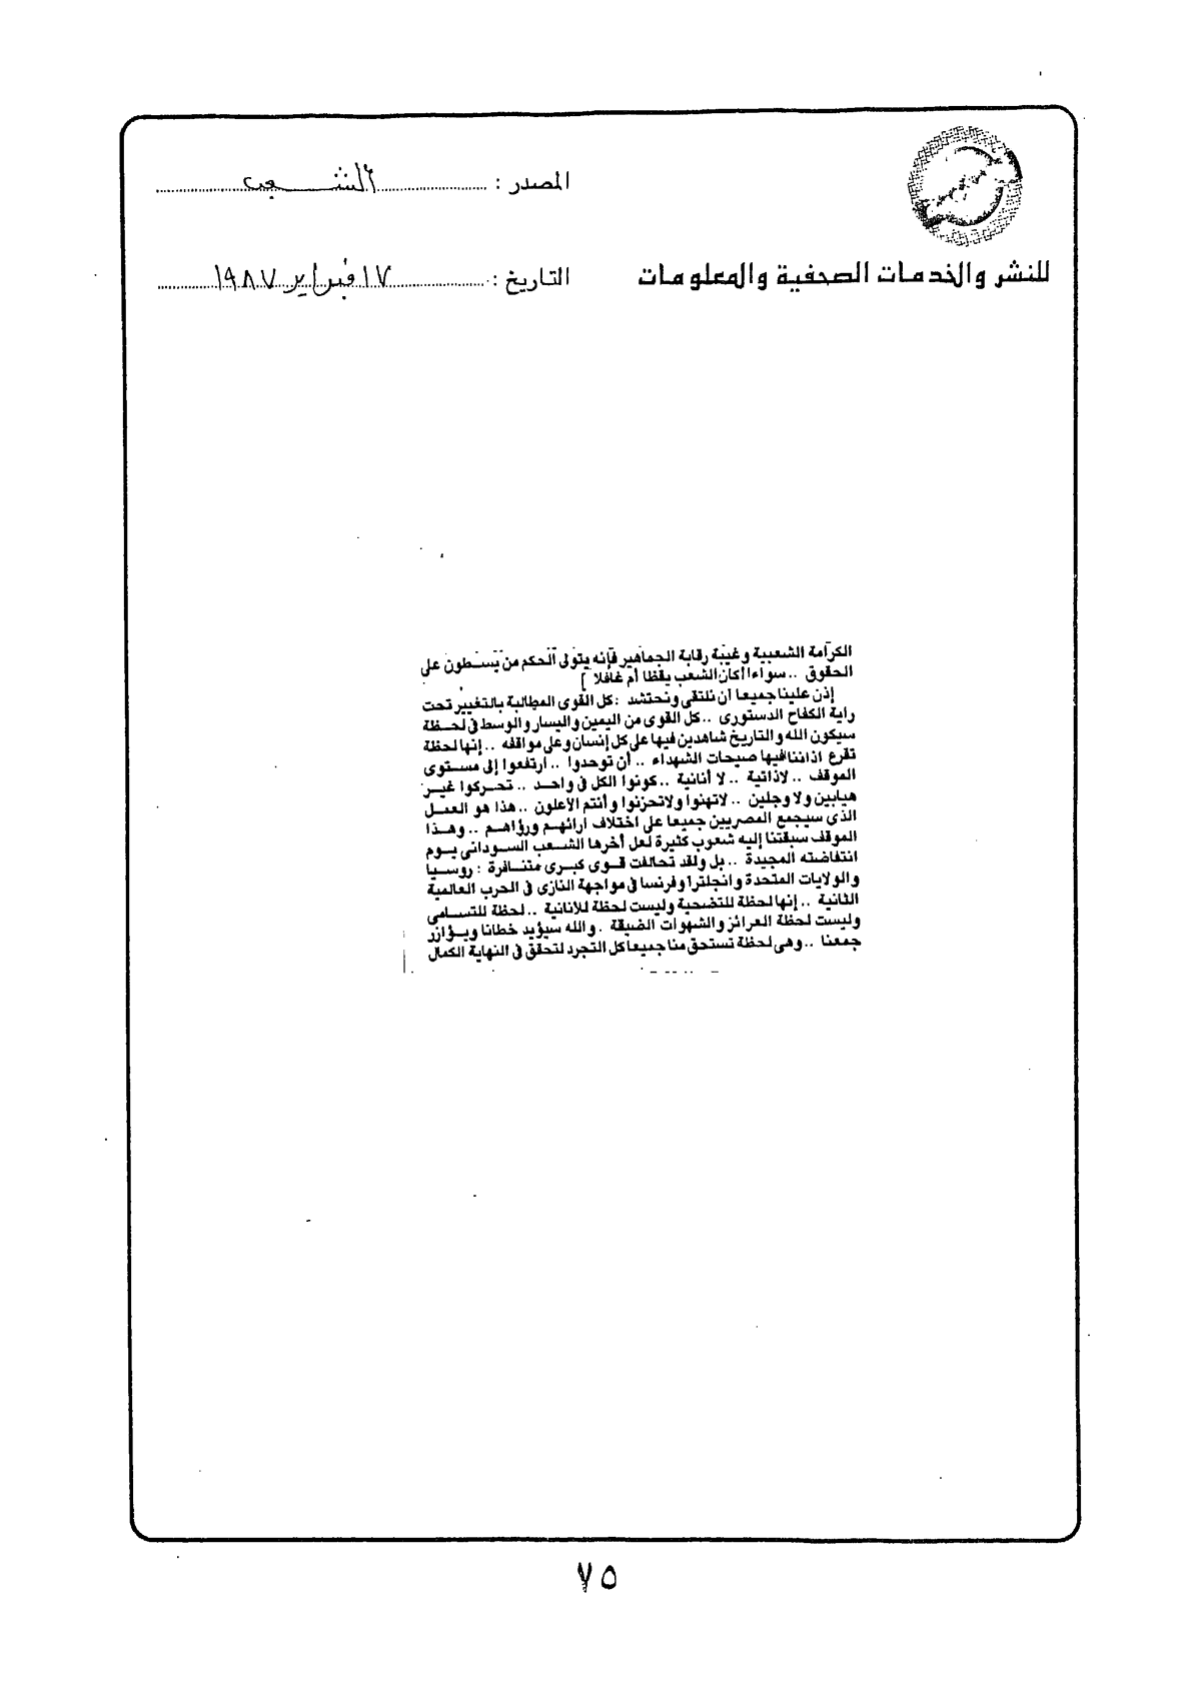 المصدر : الشعب
للنشر والخدمات الصحفية والمعلومات
التاريخ : ١٧ فبراير ١٩٨٧
الكرامة الشعبية وغيبة رقابة الجماهير فإنه يتولى الحكم من يسطون على
الحقوق .. سواء أكان الشعب يقظا أم غافلا ]
إذن علينا جميعا أن نلتقى ونحتشد : كل القوى المطالبة بالتغيير تحت
راية الكفاح الدستورى .. كل القوى من اليمين واليسار والوسط فى لحظة
سيكون الله والتاريخ شاهدين فيها على كل إنسان وعلى مواقفه .. إنها لحظة
تقرع اذاننا فيها صيحات الشهداء .. أن توحدوا .. ارتفعوا إلى مستوى
الموقف .. لا ذاتية .. لا أنانية .. كونوا الكل فى واحد .. تحركوا غير
هيابين ولا وجلين .. لا تهنوا ولا تحزنوا وأنتم الأعلون .. هذا هو العمل
الذى سيجمع المصريين جميعا على اختلاف ارائهم ورؤاهم .. وهذا
الموقف سبقتنا إليه شعوب كثيرة لعل أخرها الشعب السودانى يوم
انتفاضته المجيدة .. بل ولقد تحالفت قوى كبرى متنافرة : روسيا
والولايات المتحدة وانجلترا وفرنسا فى مواجهة النازى فى الحرب العالمية
الثانية .. إنها لحظة للتضحية وليست لحظة للأنانية .. لحظة للتسامى
وليست لحظة الغرائز والشهوات الضيقة . والله سيؤيد خطانا ويؤازر
جمعنا .. وهى لحظة تستحق منا جميعا كل التجرد لتحقق فى النهاية الكمال
٧٥